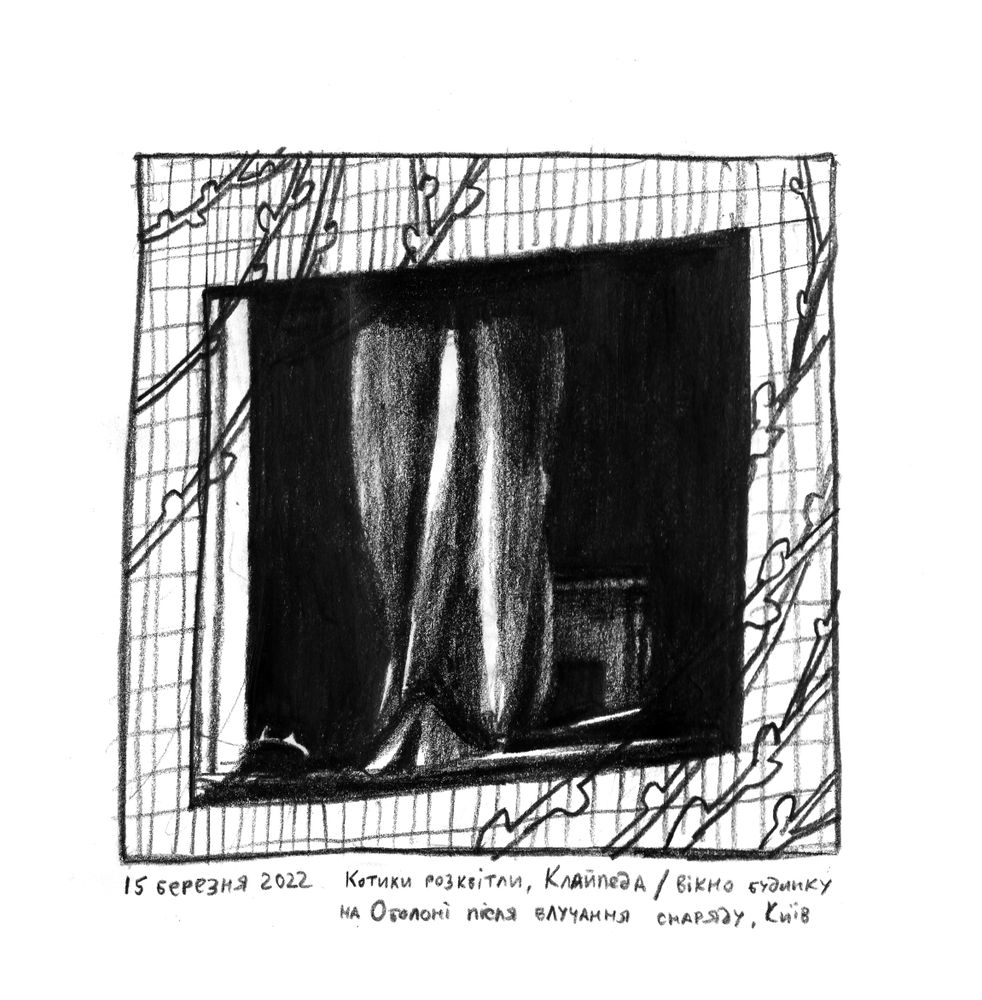 15 березня 2022 Котики розквітли, Клайпеда / вікно будинку
на Оболоні після влучання снаряду, Київ